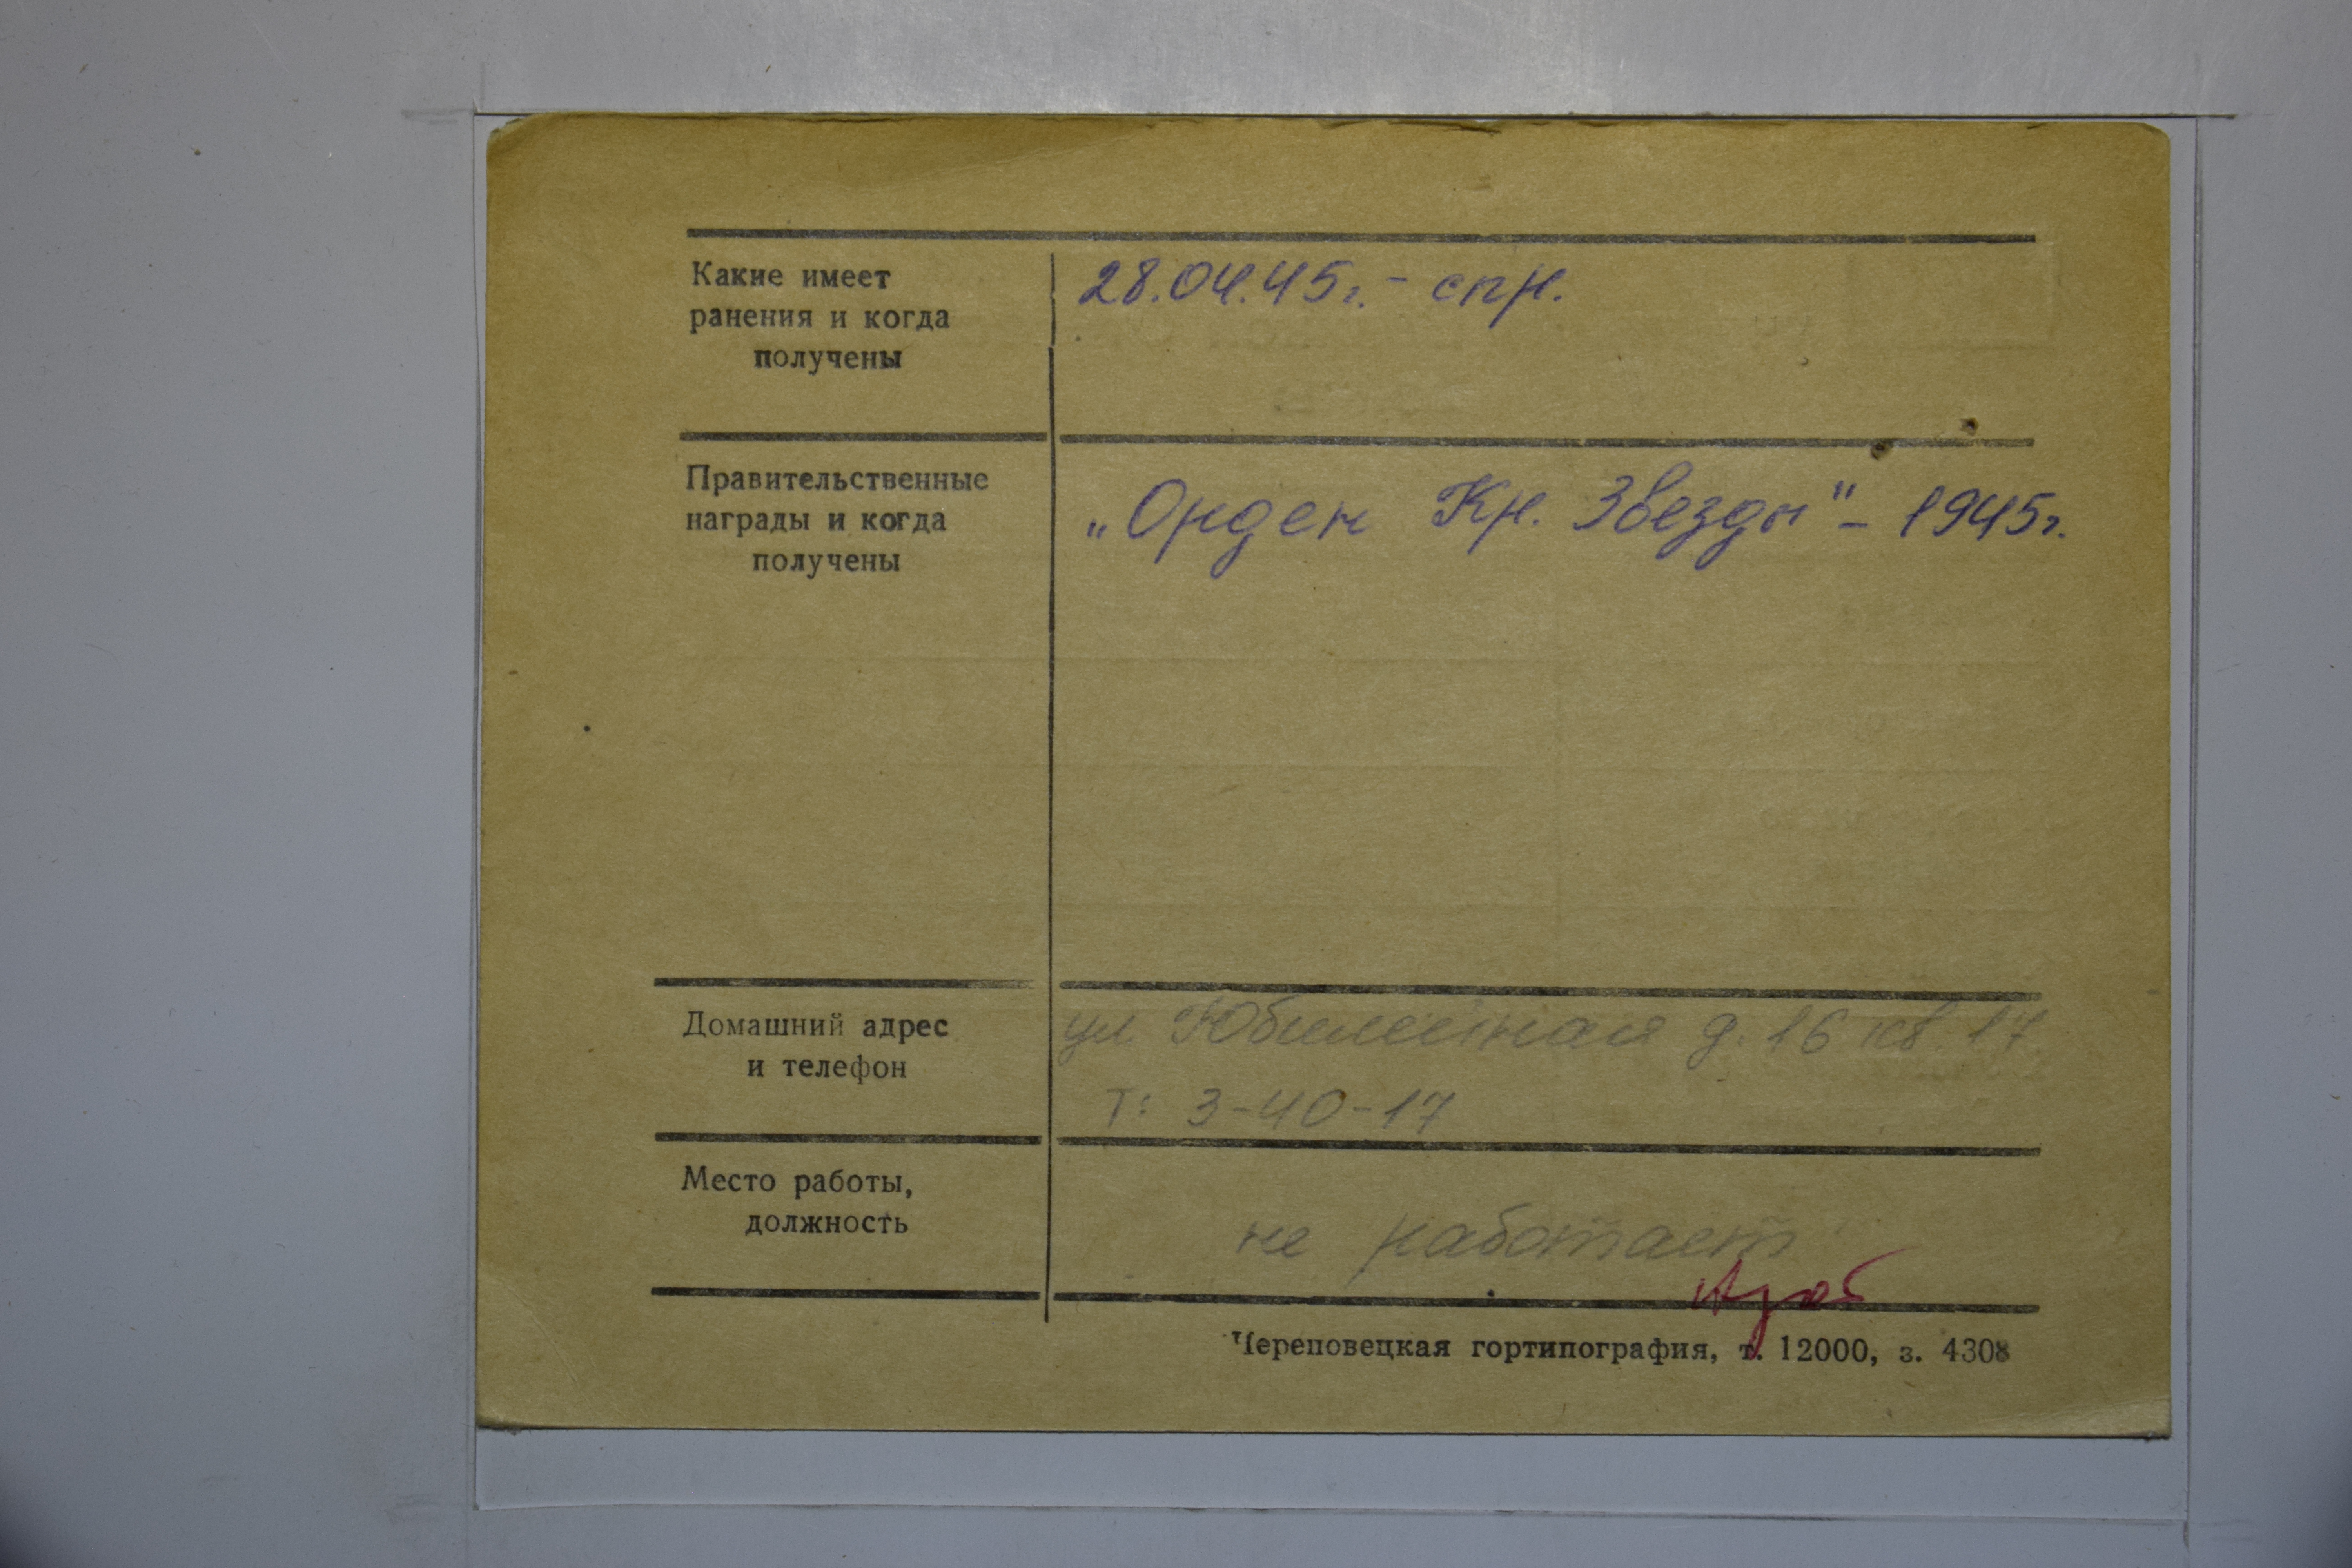 Какие имеет
ранения и когда
получены
28.04.45г. - спр.
Правительственные
награды и когда
получены
„Орден Кр. Звезды" - 1945г.
Домашний адрес
и телефон
ул. Юбилейная д. 16 кв. 17
Т: 3-40-17
Место работы,
должность
не работает
Череповецкая гортипография, т. 12000, з. 4308